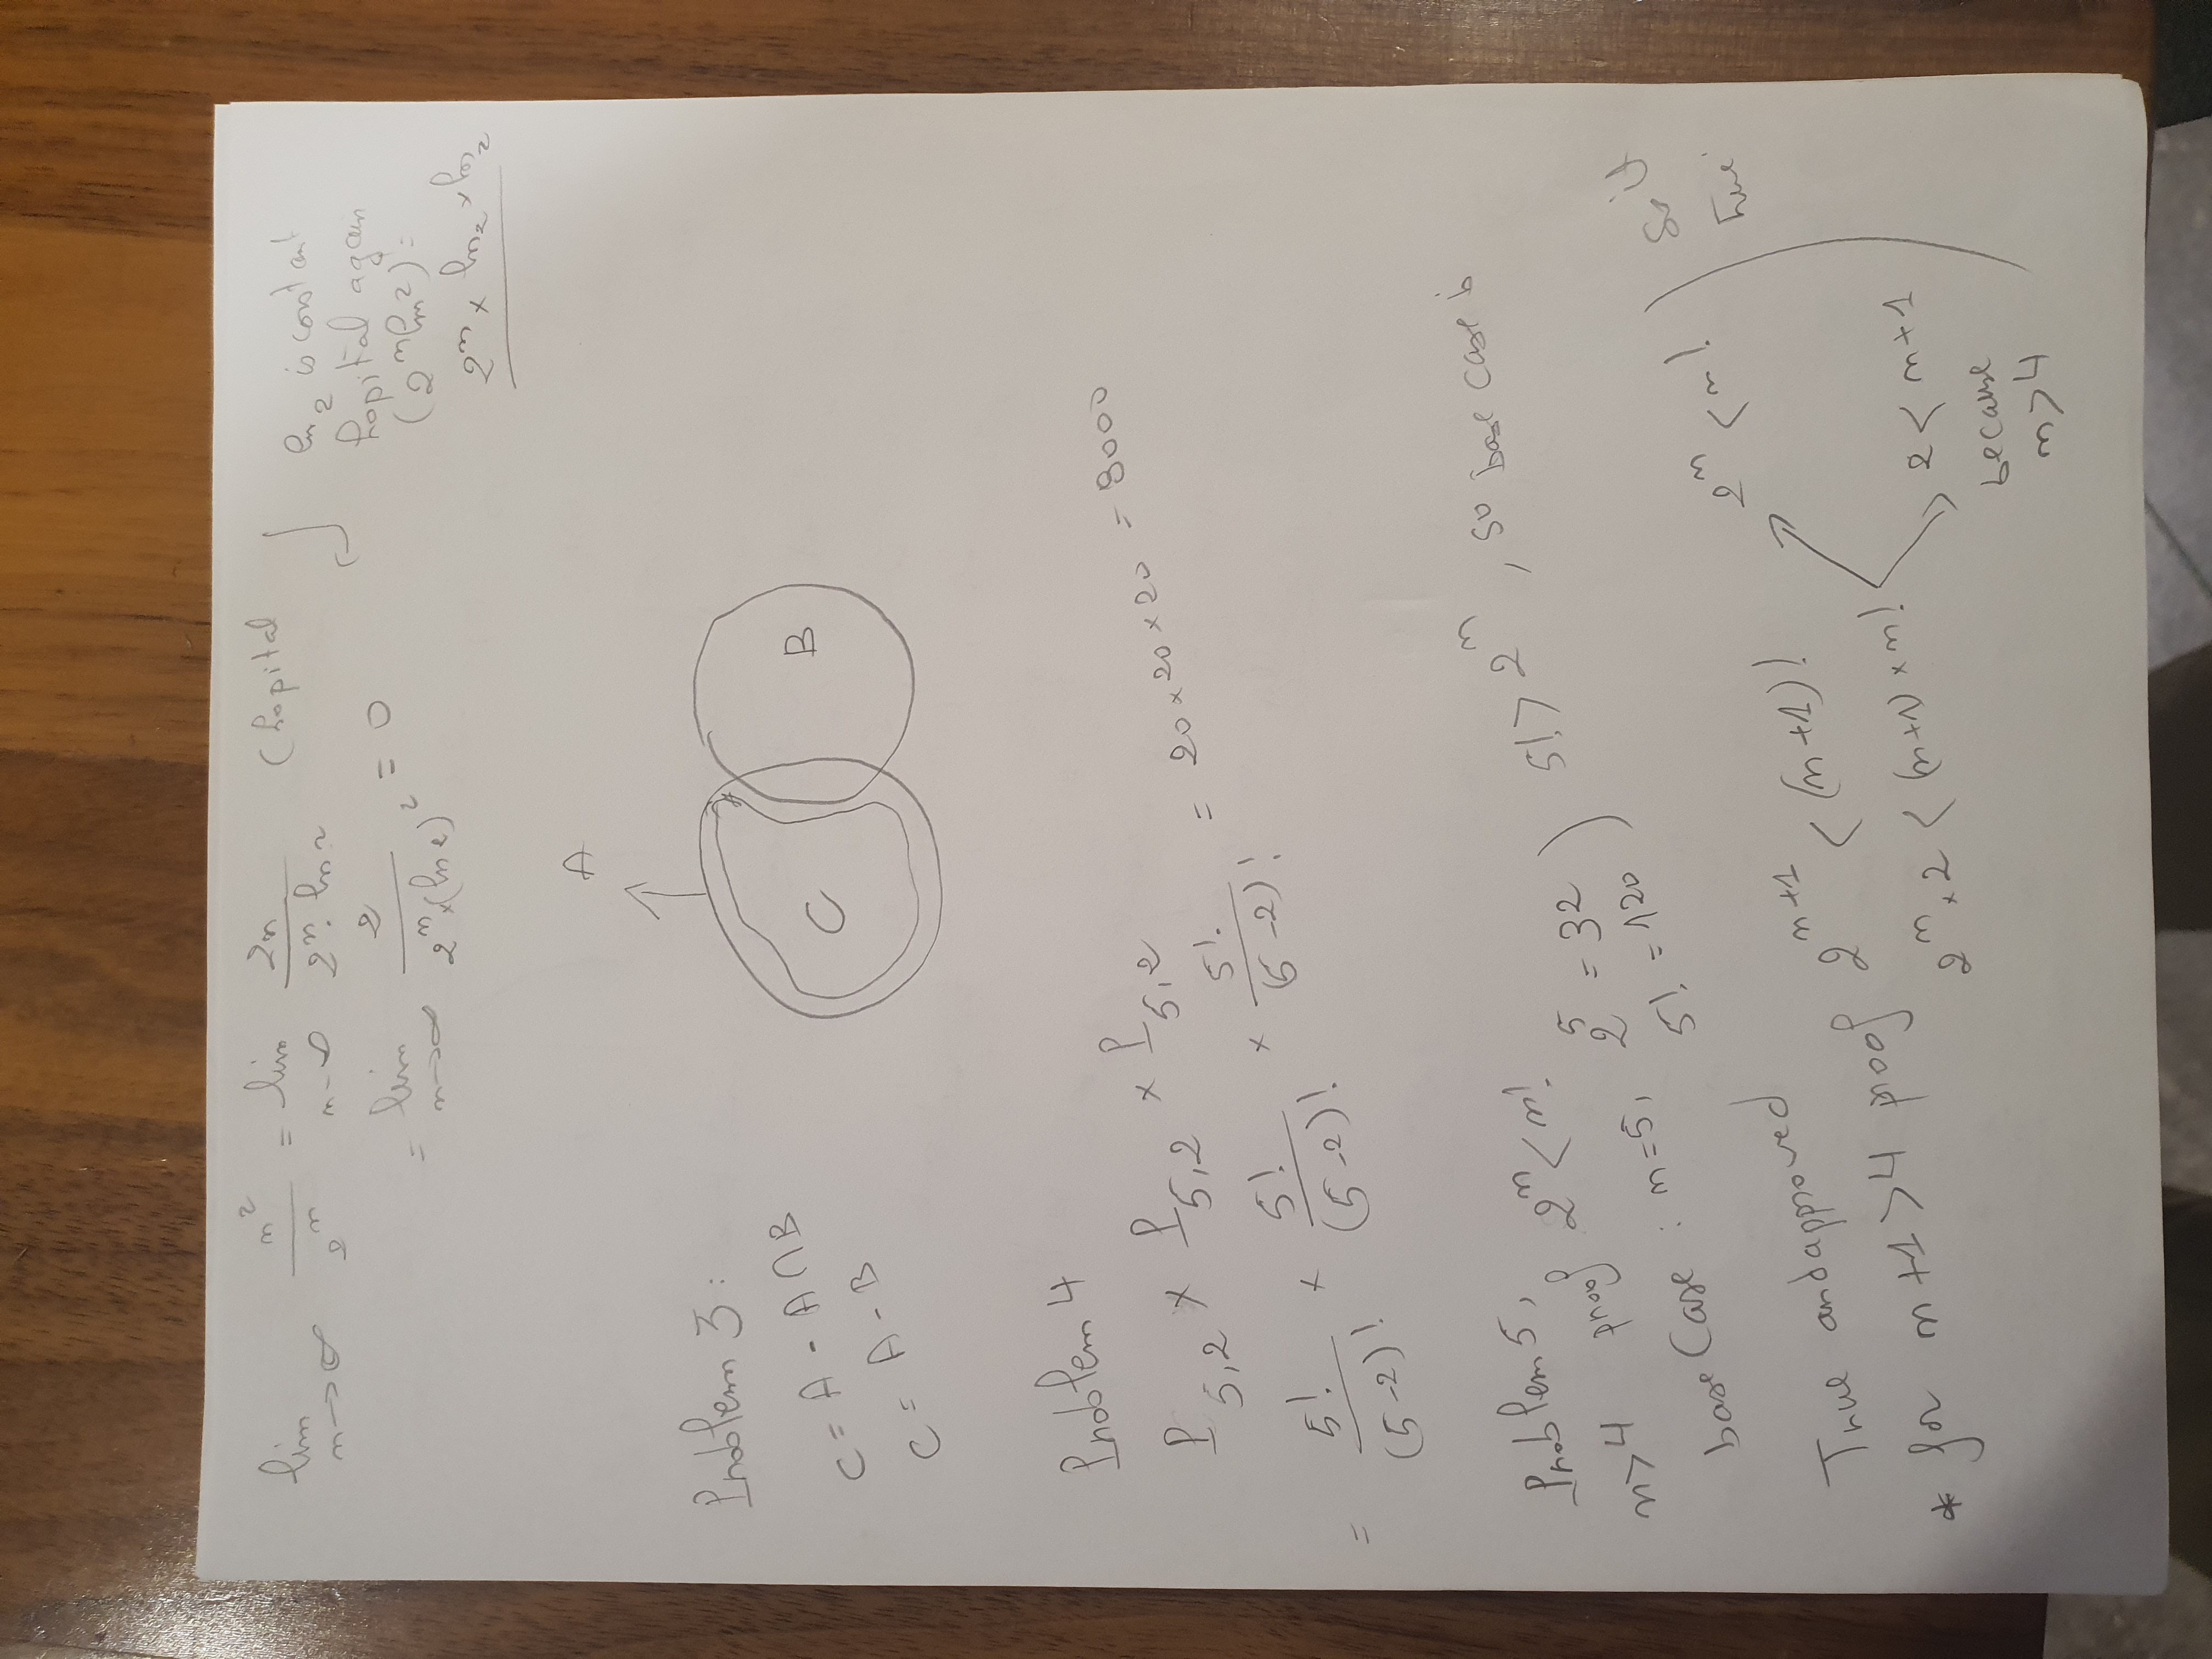 lim n→∞ n²/2ⁿ = lim n→∞ 2n/(2ⁿ·ln2) (hopital
= lim n→∞ 2/(2ⁿ×(ln2)²) = 0
ln2 is constant
hopital again
(2ⁿln2)' =
2ⁿ × ln2 × ln2
A
Problem 3:
C = A - A∩B
C = A - B
C
B
Problem 4
P5,2 × P5,2 × P5,2
= 5!/(5-2)! × 5!/(5-2)! × 5!/(5-2)! = 20×20×20 = 8000
Problem 5,
n>4 proof 2ⁿ < n!
base Case: n=5, 2⁵ = 32
5! = 120
5! > 2ⁿ, so base case is
True and approved
* for n+1>4 proof 2ⁿ⁺¹ < (n+1)!
2ⁿ×2 < (n+1)×n!
2ⁿ < n!
2 < n+1
because
n>4
So it
true